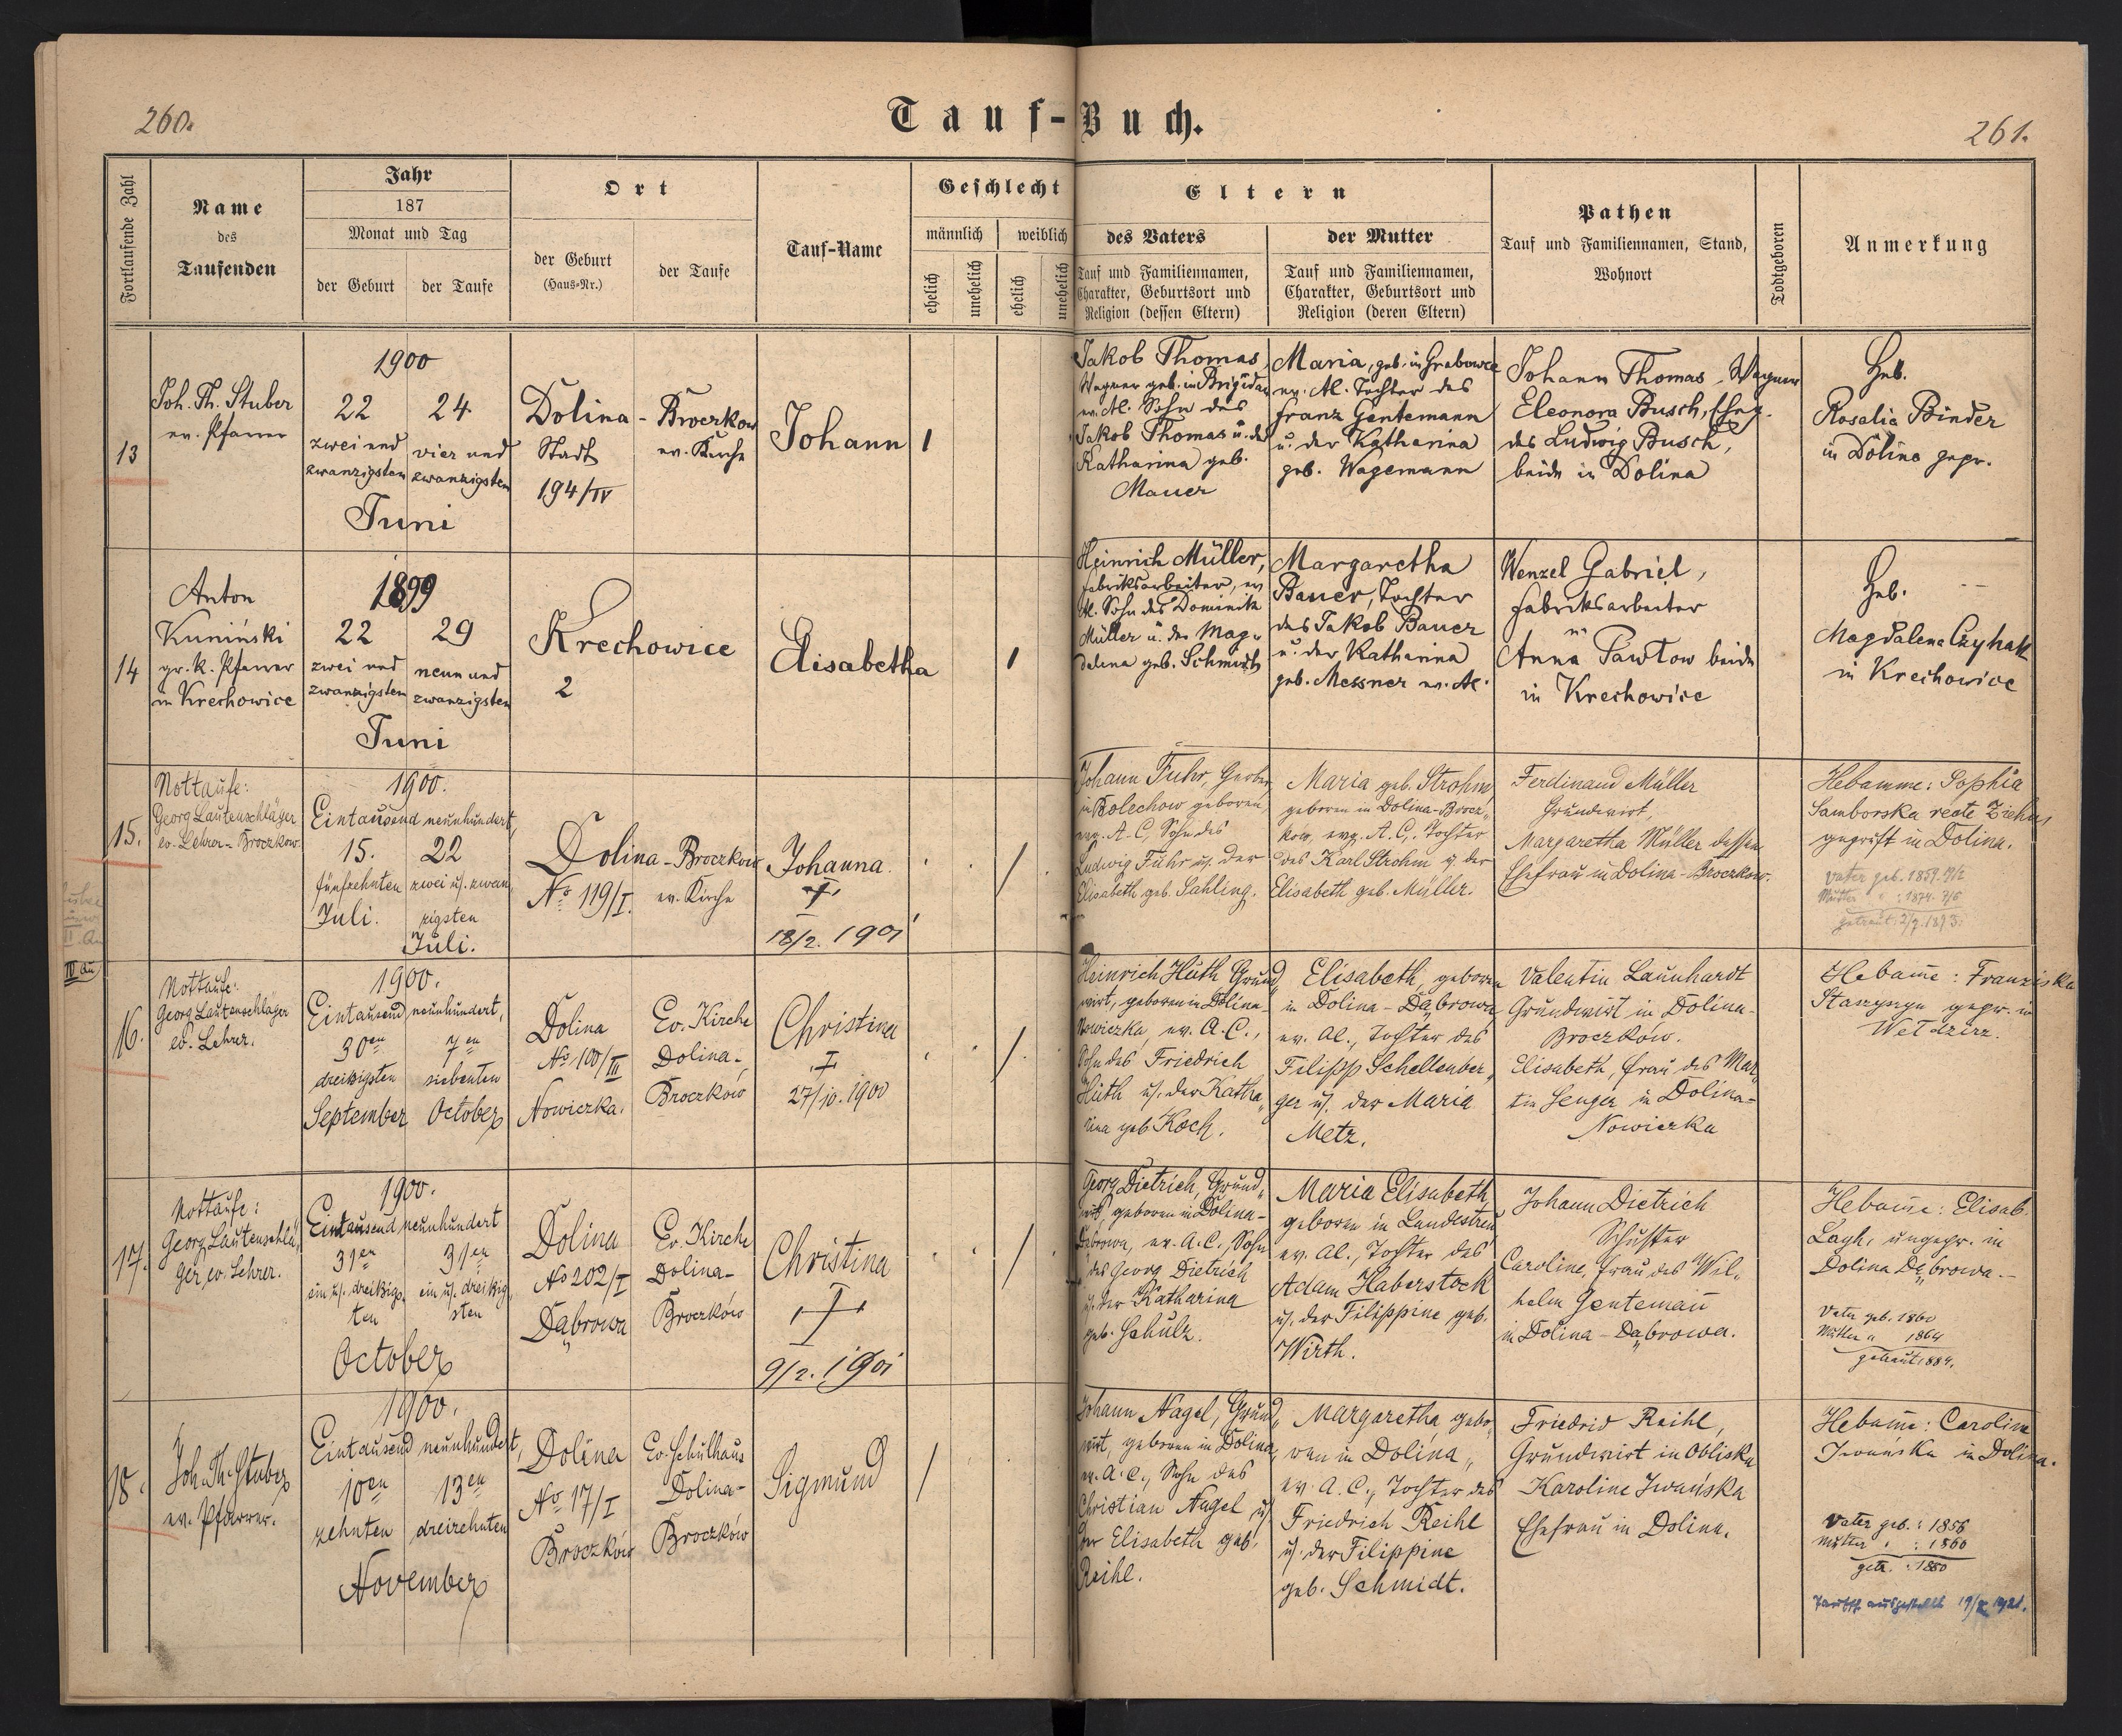 260.
Tauf-Buch.
261.
Fortlaufende Zahl
Name
des
Taufenden
Jahr
187
Monat und Tag
der Geburt
der Taufe
Ort
der Geburt
(Haus-Nr.)
der Taufe
Tauf-Name
Geschlecht
männlich
weiblich
ehelich
unehelich
ehelich
unehelich
Eltern
des Vaters
Tauf und Familiennamen,
Charakter, Geburtsort und
Religion (dessen Eltern)
der Mutter
Tauf und Familiennamen,
Charakter, Geburtsort und
Religion (deren Eltern)
Pathen
Tauf und Familiennamen, Stand,
Wohnort
Todtgeboren
Anmerkung
13
Joh. Th. Stuber
ev. Pfarrer
1900
22
zwei und
zwanzigsten
24
vier und
zwanzigsten
Juni
Dolina - Broczkow
Stadt
194/IV
ev. Kirche
Johann
1
Jakob Thomas
Wagner geb. in Brigidau
ev. AC. Sohn des
Jakob Thomas u. der
Katharina geb.
Mauer
Maria, geb. in Grabowce
ev. AC. Tochter des
Franz Gentemann
u. der Katharina
geb. Wagemann
Johann Thomas, Wagner
Eleonora Busch, Eheg.
des Ludwig Busch,
beide in Dolina
Heb.
Rosalia Binder
in Dolina gepr.
14
Anton
Kuniński
gr. k. Pfarrer
in Krechowice
1899
22
zwei und
zwanzigsten
29
neun und
zwanzigsten
Juni
Krechowice
2
Elisabetha
1
Heinrich Müller,
Fabriksarbeiter, ev.
AC. Sohn des Dominik
Müller u. der Mag-
dalena geb. Schmidt
Margaretha
Bauer, Tochter
des Jakob Bauer
u. der Katharina
geb. Messner ev. AC.
Wenzel Gabriel,
Fabriksarbeiter
u.
Anna Pawłow beide
in Krechowice
Heb.
Magdalena Czyhak
in Krechowice
15.
Nottaufe:
Georg Lautenschläger
ev. Lehrer - Broczkow.
1900.
Eintausend neunhundert,
15.
fünfzehnten
Juli.
22
zwei u. zwan
zigsten
Juli.
Dolina - Broczkow
No 119/I.
ev. Kirche
Johanna.
†
18/2. 1901
/
Johann Fuhr, Gerber
in Bolechow geboren,
evg. A. C, Sohn des
Ludwig Fuhr u. der
Elisabeth geb. Sahling.
Maria geb. Strohm
geboren in Dolina-Brocz-
kow, evg. A. C., Tochter
des Karl Strohm u. der
Elisabeth geb. Müller.
Ferdinand Müller
Grundwirt,
Margaretha Müller dessen
Ehefrau in Dolina-Broczkow.
Hebamme: Sophia
Samborska recte Ziehns
geprüft in Dolina.
Vater geb. 1859.
Mutter " : 1874. 3/6
getraut: 2/7. 1893.
16.
Nottaufe:
Georg Lautenschläger
ev. Lehrer.
1900.
Eintausend neunhundert,
30en
dreißigsten
September
7en
siebenten
October
Dolina
No 100/III
Nowiczka.
Ev. Kirche
Dolina-
Broczków
Christina
†
27/10. 1900
/
Heinrich Huth Grund
wirt, geboren in Dolina-
Nowiczka, ev. A. C.,
Sohn des Friedrich
Huth u. der Katha
rina geb. Koch.
Elisabeth, geboren
in Dolina - Dąbrowa
ev. AC., Tochter des
Filipp Schellenber
ger u. der Maria
Metz.
Valentin Launhardt
Grundwirt in Dolina-
Broczków.
Elisabeth, Frau des Mar
tin Senger in Dolina-
Nowiczka
Hebame: Franziska
gepr. in
Wełdzirz.
17.
Nottaufe:
Georg Lautenschlä
ger, ev. Lehrer.
1900.
Eintausend neunhundert
31en
ein u. dreißigs
ten
31en
ein u. dreißig
sten
October
Dolina
No 202/I
Dąbrowa
Ev. Kirche
Dolina-
Broczków
Christina
†
9/2. 1901
/
Georg Dietrich, Grund
wirt, geboren in Dolina-
Dąbrowa, ev. A. C., Sohn
des Georg Dietrich
u. der Katharina
geb. Schulz.
Maria Elisabeth
geboren in Landestreu
ev. AC., Tochter des
Adam Haberstock
u. der Filippine geb.
Wirth.
Johann Dietrich
Schuster
Caroline, Frau des Wil-
helm Gentemann
in Dolina - Dąbrowa.
Hebame: Elisab.
ungepr. in
Dolina Dąbrowa. -
Vater geb. 1860
Mutter " 1864
getraut 1884.
18.
Joh. Th. Stuber
ev. Pfarrer.
1900.
Eintausend neunhundert,
10en
zehnten
13en
dreizehnten
November
Dolina
No 17/I
Broczków
Ev. Schulhaus
Dolina-
Broczków
Sigmund
/
Johann Nagel, Grund
wirt, geboren in Dolina,
ev. A. C., Sohn des
Christian Nagel u.
der Elisabeth geb.
Reihl.
Margaretha, gebo
ren in Dolina,
ev. A. C., Tochter des
Friedrich Reihl
u. der Filippine
geb. Schmidt.
Friedrich Reihl,
Grundwirt in Obliska
Karoline Iwańska
Ehefrau in Dolina.
Hebame: Carolina
Iwańska in Dolina.
Vater geb.: 1856
Mutter " : 1860
getr. : 1880
ausgestellt 1921.